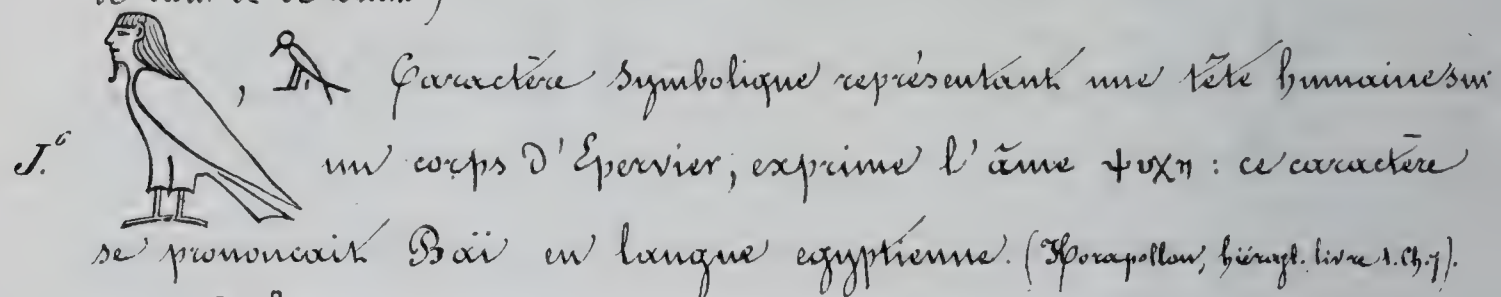 , Caractère symbolique représentant une tête humaine sur
J.6 un corps d'Epervier; exprime l'âme ψυχη : ce caractère
se prononcait Baï en langue egyptienne. (Horapollon, hiérogl. livre 1. Ch. 7).